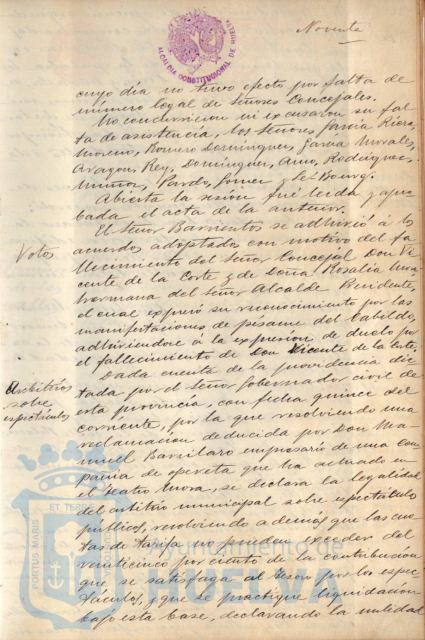 Noventa
ALCALDIA CONSTITUCIONAL DE HUELVA
cuyo día no tuvo efecto por falta de
número legal de Señores Concejales.
No concurrieron ni excusaron su fal-
ta de asistencia, los Señores García Riera,
Moreno, Romero Dominguez, Garcia Morales,
Aragon, Rey, Dominguez, Rodriguez,
Muñoz, Pardo, Gomez y Le Bourg.
Abierta la sesión fué leida y apro-
bada el acta de la anterior.
Votos
El Señor Barrientos se adhirió á los
acuerdos adoptados con motivo del fa-
llecimiento del Señor Concejal Don Vi-
cente de la Corte y de Doña Rosalia
hermana del Señor Alcalde Presidente,
el cual expresó su reconocimiento por las
manifestaciones de pésame del Cabildo,
adhiriendose á la expresion de duelo por
el fallecimiento de Don Vicente de la Corte.
Arbitrios
sobre
espectáculos
Dada cuenta de la providencia dic-
tada por el Señor Gobernador civil de
esta provincia, con fecha quince del
corriente, por la que resolviendo una
reclamacion deducida por Don Ma-
nuel Barsilaro empresario de una com-
pañia de opereta que ha actuado en
el teatro Mora, se declara la legalidad
del arbitrio municipal sobre espectáculos
publicos, resolviendo ademas que las cuo-
tas de tarifa no pueden exceder del
veinticinco por ciento de la contribucion
que se satisfaga al Tesoro por los espec-
táculos, y que se practique liquidación
bajo esta base, declarando la nulidad
PORTUS MARIS ET TERRE
Ayuntamiento de
HUELVA